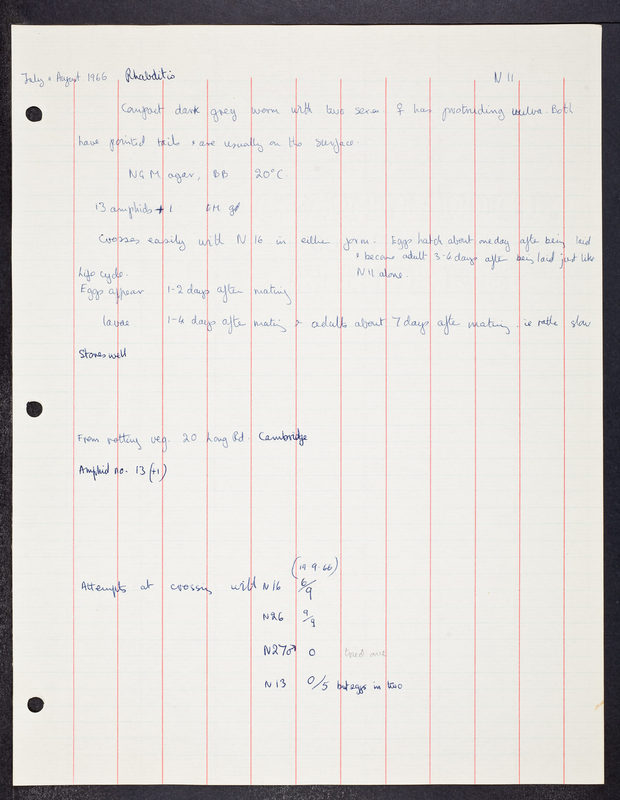 July & August 1966 Rhabditis N 11
Compact dark grey worm with two sexes ♀ has protruding vulva. Both
have pointed tails & are usually on the surface.
NGM agar, BB 20°C
13 amphids + 1
Crosses easily with N 16 in either form. Eggs hatch about one day after being laid
& become adult 3-4 days after being laid just like
N 11 alone.
Life cycle.
Eggs appear 1-2 days after mating
larvae 1-4 days after mating & adults about 7 days after mating. ie rather slow
Stores well
From rotting veg. 20 Long Rd. Cambridge
Amphid no. 13 (+1)
(19.9.66)
Attempts at crossing with N16 6/9
N26 9/9
N27♂ 0 tried once
N13 0/5 but eggs in two